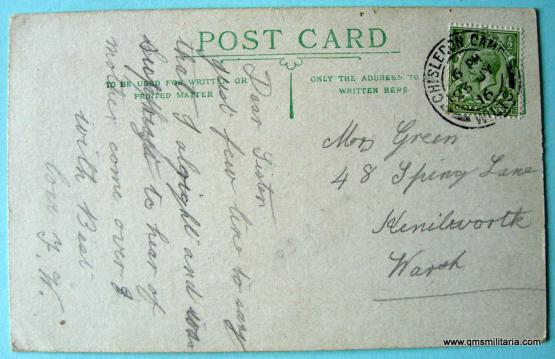 POST CARD
TO BE USED FOR WRITTEN OR
PRINTED MATTER
ONLY THE ADDRESS TO
WRITTEN HERE
CHISLEDON CAMP
5 PM
16
WILTS
Dear Sister
Just few line to say
that I alright and was
surprised to hear of
mother come over
with Best
love F.W.
Mrs Green
48 Spring Lane
Kenilworth
Warsh
www.qmsmilitaria.com